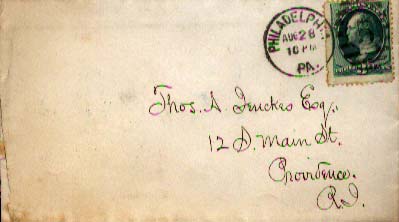 PHILADELPHIA
AUG 28
10 PM
PA.
Thos. A. Jenckes Esq.,
12 S. Main St.
Providence.
R.I.